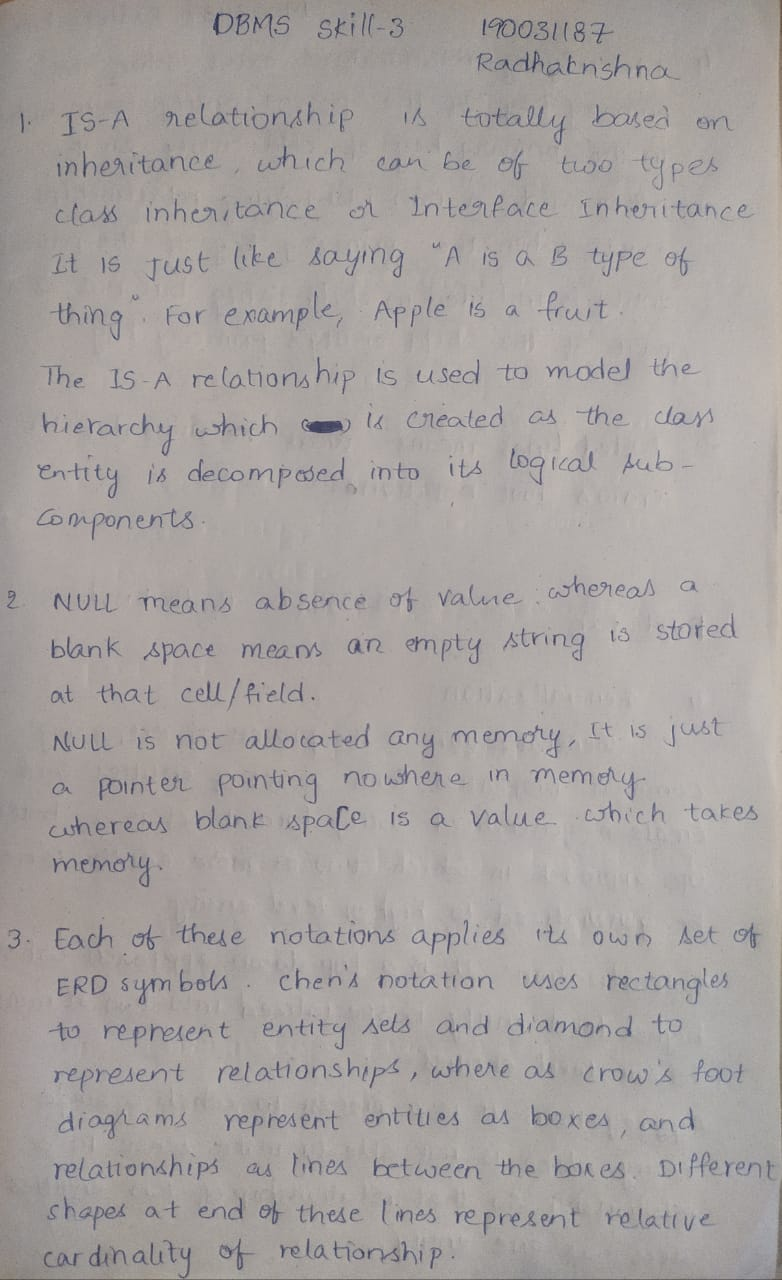 DBMS Skill-3 190031187
Radhakrishna
1. IS-A relationship is totally based on
inheritance, which can be of two types
class inheritance or Interface Inheritance
It is just like saying "A is a B type of
thing". For example, Apple is a fruit.
The IS-A relationship is used to model the
hierarchy which is created as the class
entity is decomposed into its logical sub-
components.
2 NULL means absence of value. whereas a
blank space means an empty string is stored
at that cell/field.
NULL is not allocated any memory, It is just
a pointer pointing nowhere in memory
whereas blank space is a value which takes
memory.
3. Each of these notations applies its own set of
ERD symbols. chen's notation uses rectangles
to represent entity sets and diamond to
represent relationships, where as crow's foot
diagrams represent entities as boxes, and
relationships as lines between the boxes. Different
shapes at end of these lines represent relative
cardinality of relationship.